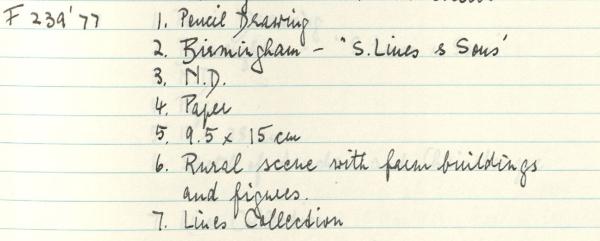 F 239'77 1. Pencil Drawing
2. Birmingham - "S. Lines & Sons'
3. N.D.
4. Paper
5. 9.5 x 15 cm
6. Rural scene with farm buildings
and figures.
7. Lines Collection